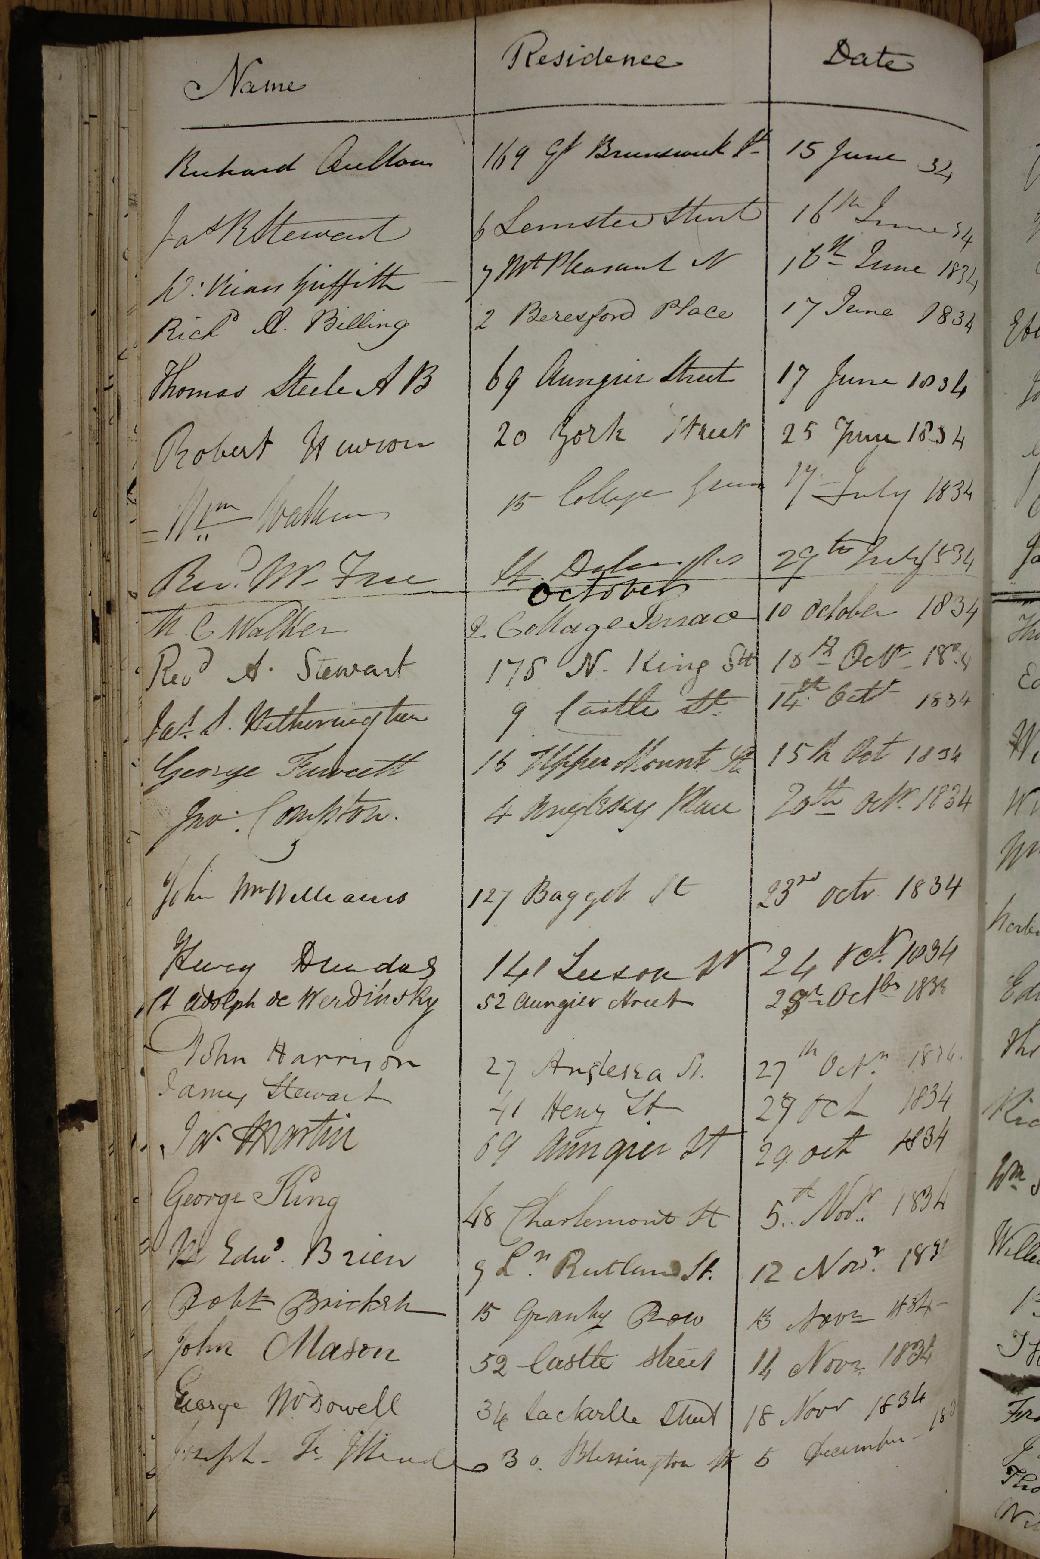 Name Residence Date
Richard 169 Gt Brunswick St 15 June 34
Jas R Stewart 6 Leinster Street 16th June 34
Griffith 7 Mt Pleasant N 16th June 1834
Richd M. Billing 2 Beresford Place 17 June 1834
Thomas Steele A B 69 Aungier Street 17 June 1834
Robert Hewson 20 York Street 25 June 1834
Wm Walker 15 College Green July 1834
Revd 29th July 1834
October
Walker 2 Cottage Terrace 10 October 1834
Revd A. Stewart 178 N. King Stt 13th Octr
Jas. S. Hetherington 9 Castle St. 14th Octr 1834
George Fawcett 16 Upper Mount St 15th Oct 1834
Jno. Compton. 4 Anglesey Place 20th Octr 1834
John McWilliams 127 Baggot St 23rd octr 1834
Henry Dundas 141 Leeson St 24 Oct 1834
Adolph de Werdinsky 52 Aungier street Octbr
John Harrison 27 Anglesea St. 27th Octr.
James Stewart 41 Henry St 29 Oct 1834
Jas Martin 69 Aungier St 29 oct 1834
George King 48 Charlemont St 5th Novr. 1834
Edwd. Brien 9 Lr Rutland St. 12 Novr.
Robt 15 Granby Row 13 Novr 1834
John Mason 52 Castle street 14 Novr 1834
George McDowell 34 Sackville Street 18 Novr 1834
Joseph 30. Blessington St 5 December